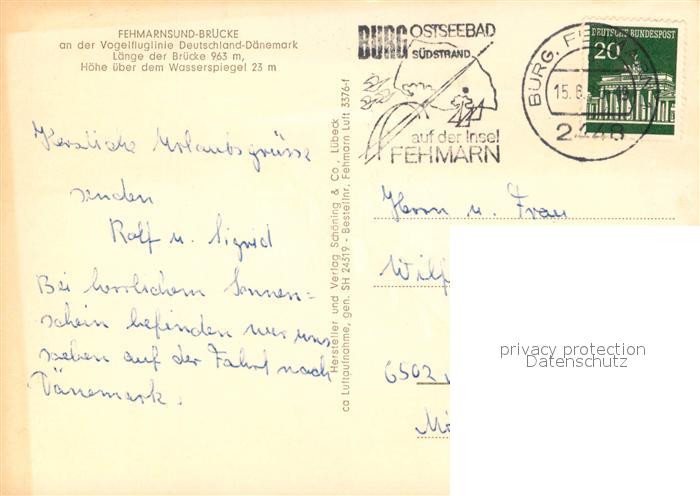 FEHMARNSUND-BRÜCKE
an der Vogelfluglinie Deutschland-Dänemark
Länge der Brücke 963 m,
Höhe über dem Wasserspiegel 23 m
Herzliche Urlaubsgrüsse
senden
Rolf u. Sigrid
Bei herrlichem Sonnen=
schein befinden wir uns
soeben auf der Fahrt nach
Dänemark.
Hersteller und Verlag Schöning & Co., Lübeck
ca Luftaufnahme, gen. SH 24319 - Bestellnr. Fehmarn Luft 3376-f
BURG OSTSEEBAD
SÜDSTRAND
auf der Insel
FEHMARN
BURG, FEHMARN
15.6.
2448
DEUTSCHE BUNDESPOST
20
Herrn u. Frau
Wilf
6502
privacy protection
Datenschutz